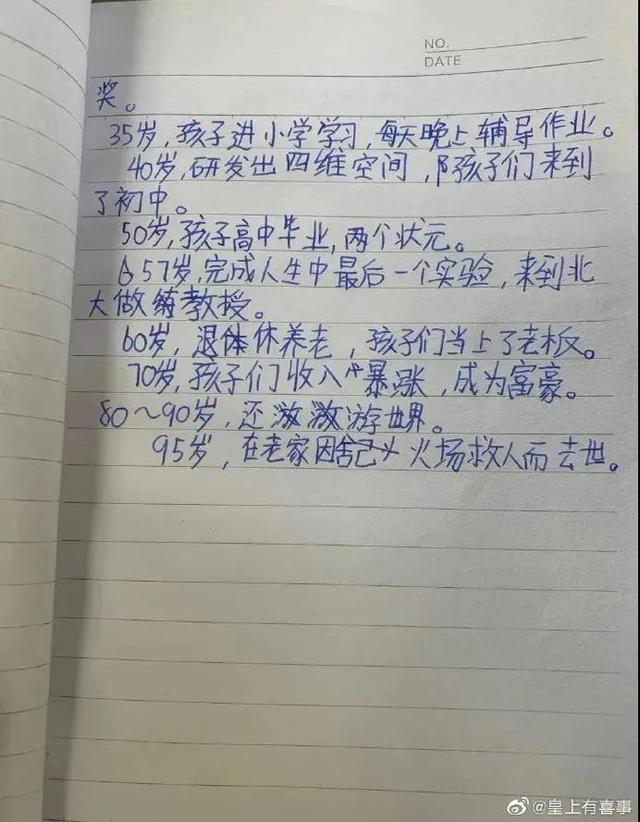 NO.
DATE
奖。
35岁,孩子进小学学习,每天晚上辅导作业。
40岁,研发出四维空间,陪孩子们来到
了初中。
50岁,孩子高中毕业,两个状元。
57岁,完成人生中最后一个实验,来到北
大做教授。
60岁,退休养老,孩子们当上了老板。
70岁,孩子们收入暴涨,成为富豪。
80~90岁,还游世界。
95岁,在老家因舍己火场救人而去世。
@皇上有喜事